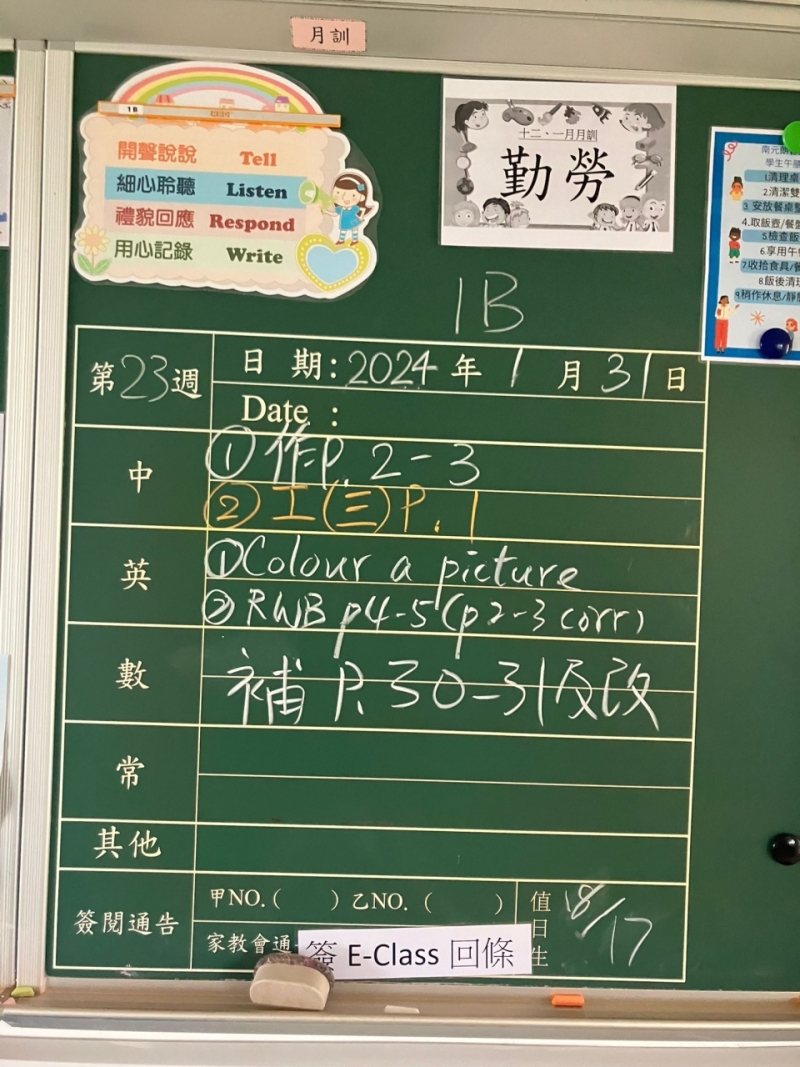 月訓
1B
開聲說說 Tell
細心聆聽 Listen
禮貌回應 Respond
用心記錄 Write
十二、一月月訓
勤勞
學生午膳
1.清理桌
2.清潔雙
3.安放餐桌墊
4.取飯壺/餐盤
5.檢查飯
6.享用午
7.收拾食具/餐
8.飯後清理
9.稍作休息/靜
1B
第23週
日 期: 2024 年 1 月 31 日
Date :
中
① 作P. 2-3
② 工(三)P. 1
英
① Colour a picture
② RWB p4-5 (p2-3 corr)
數
補 P. 30-31及改
常
其他
簽閱通告
甲NO. ( ) 乙NO. ( )
家教會通
簽 E-Class 回條
值日生
18/17